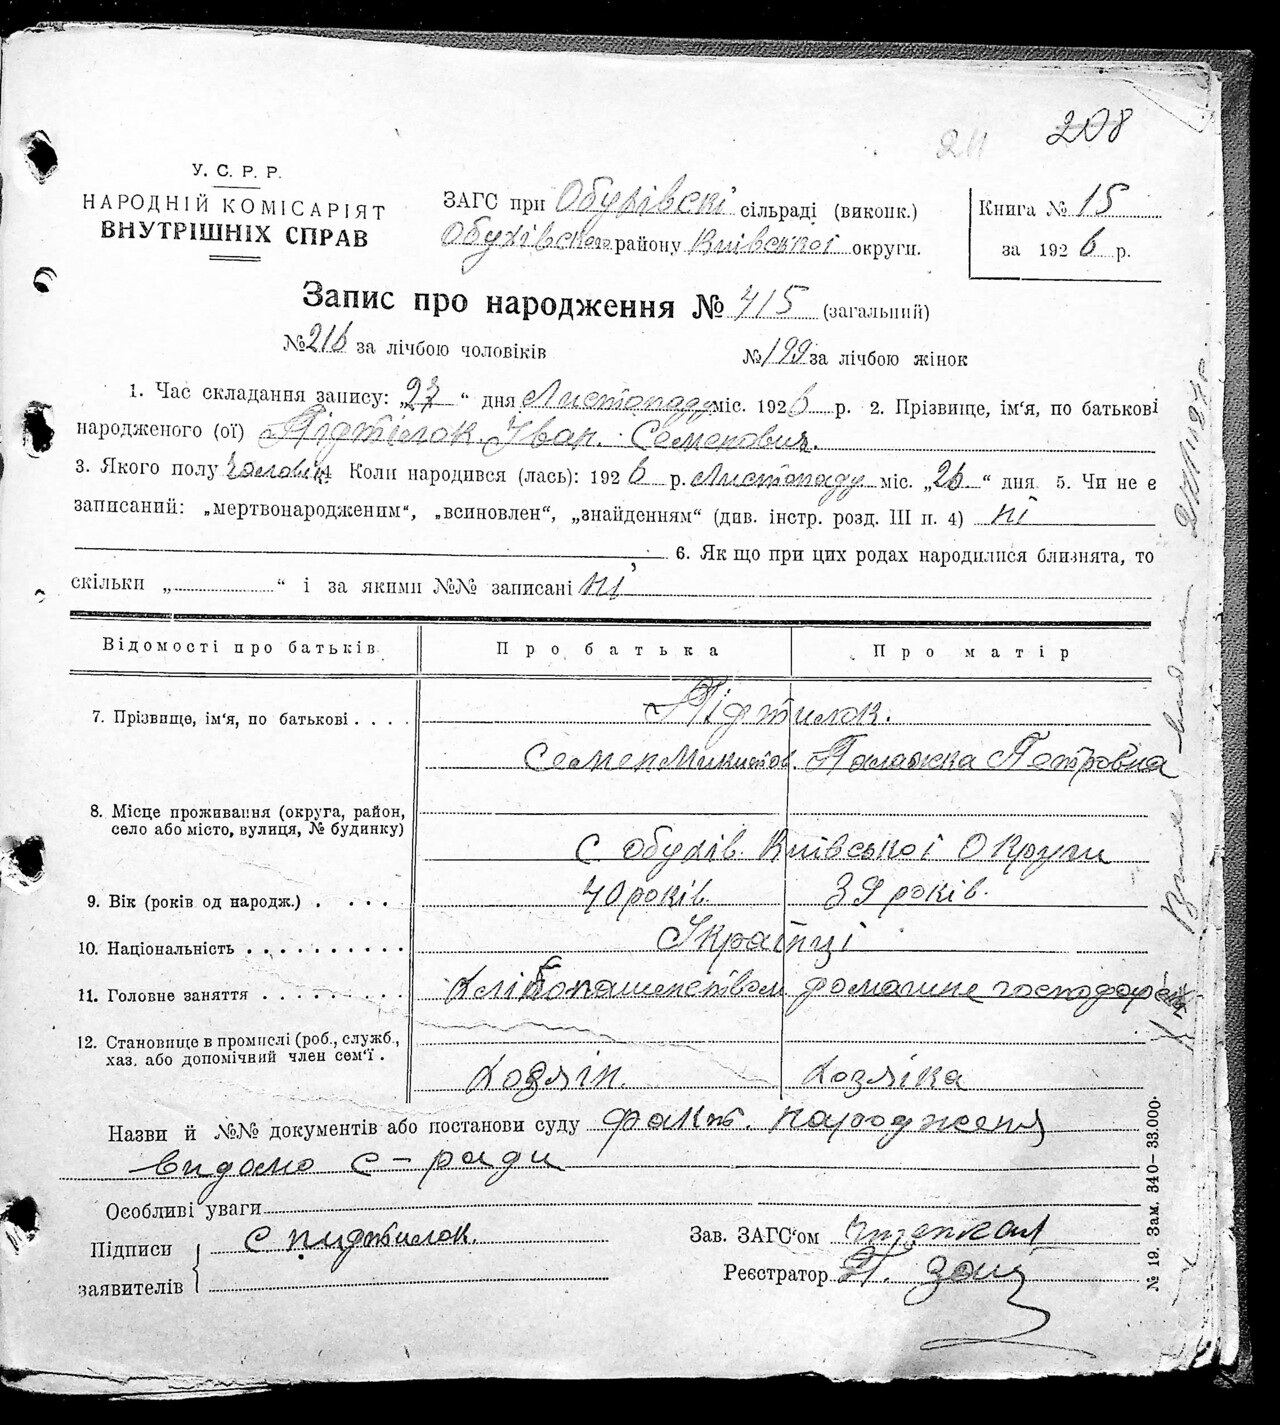 208
211
У. С. Р. Р.
НАРОДНІЙ КОМІСАРІЯТ
ВНУТРІШНІХ СПРАВ
ЗАГС при Обухівскі сільраді (виконк.)
Обухівского району Київської округи.
Книга № 15
за 1926 р.
Запис про народження № 415 (загальний)
№ 216 за лічбою чоловіків
№ 199 за лічбою жінок
1. Час складання запису: „27“ дня Листопаду міс. 1926 р. 2. Прізвище, ім'я, по батькові
народженого (ої) Підтілок Іван Семенович.
3. Якого полу чоловік 4 Коли народився (лась): 1926 р. Листопаду міс. „26“ дня 5. Чи не є
записаний: „мертвонародженим“, „всиновлен“, „знайденням“ (див. інстр. розд. III п. 4) ні
6. Як що при цих родах народилися близнята, то
скільки „ “ і за якими №№ записані ні
Відомості про батьків
Про батька
Про матір
7. Прізвище, ім'я, по батькові
Підтилок.
Семен Микитов. Палажка Петровна
8. Місце проживання (округа, район,
село або місто, вулиця, № будинку)
с Обухів. Київської Округи
9. Вік (років од народж.)
40 років
39 років.
10. Національність
Українці
11. Головне заняття
Хлібопашенством домашне господарство
12. Становище в промислі (роб., служб.,
хаз. або допомічний член сем'ї.
Хозяін.
Хозяіка
Назви й №№ документів або постанови суду факт. народженя
видано с-ради
Особливі уваги
Підписи
заявителів
С пидтилок.
Зав. ЗАГС'ом
Реєстратор
№ 19. Зам. 340—33.000.